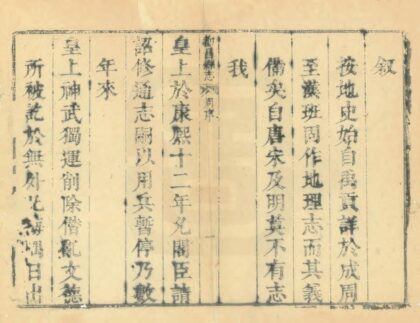 叙
按地史始自禹貢詳於成周
至漢班固作地理志而其義
備矣自唐宋及明莫不有志
我
昌縣志
皇上於康熙十二年允閣臣請
詔修通志嗣以用兵暫停乃數
年來
皇上神武獨運削除僭亂文德
所被訖於無外海隅日出